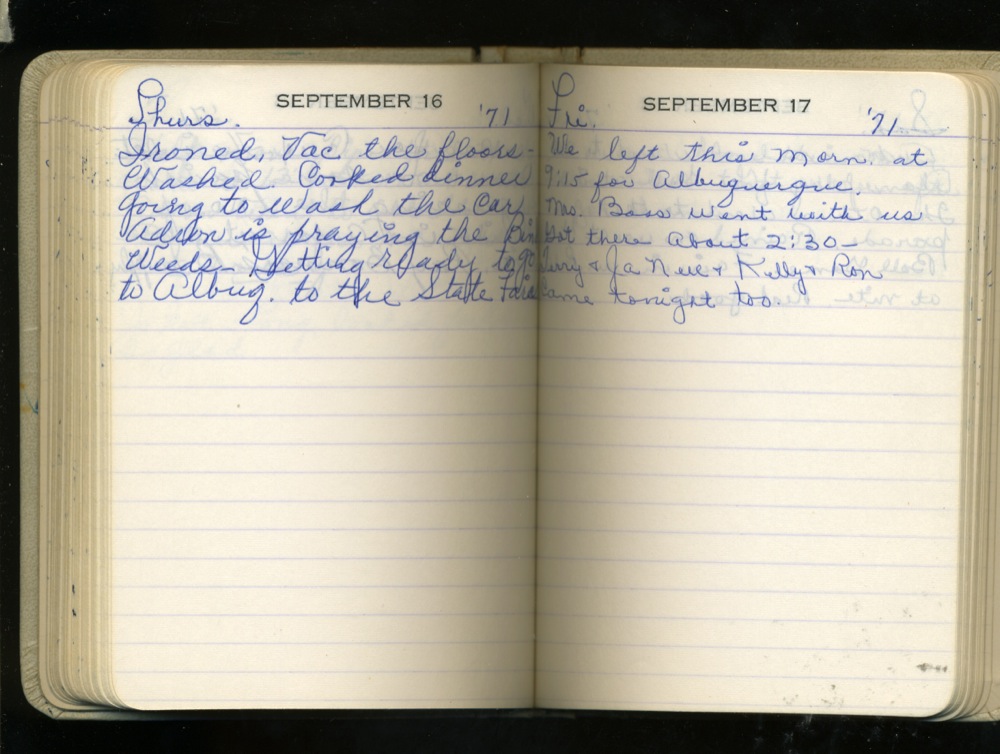 SEPTEMBER 16
Thurs. '71
Ironed, Vac the floors-
Washed. Cooked dinner
going to wash the car,
Adron is praying the
Weeds- Getting ready to go
to Albuq. to the State Fair
SEPTEMBER 17
Fri. '71
We left this Morn. at
9:15 for Albuquerque.
Mrs. Bass went with us
Got there about 2:30-
Jerry & Ja Nell & Kelly & Ron
came tonight too.